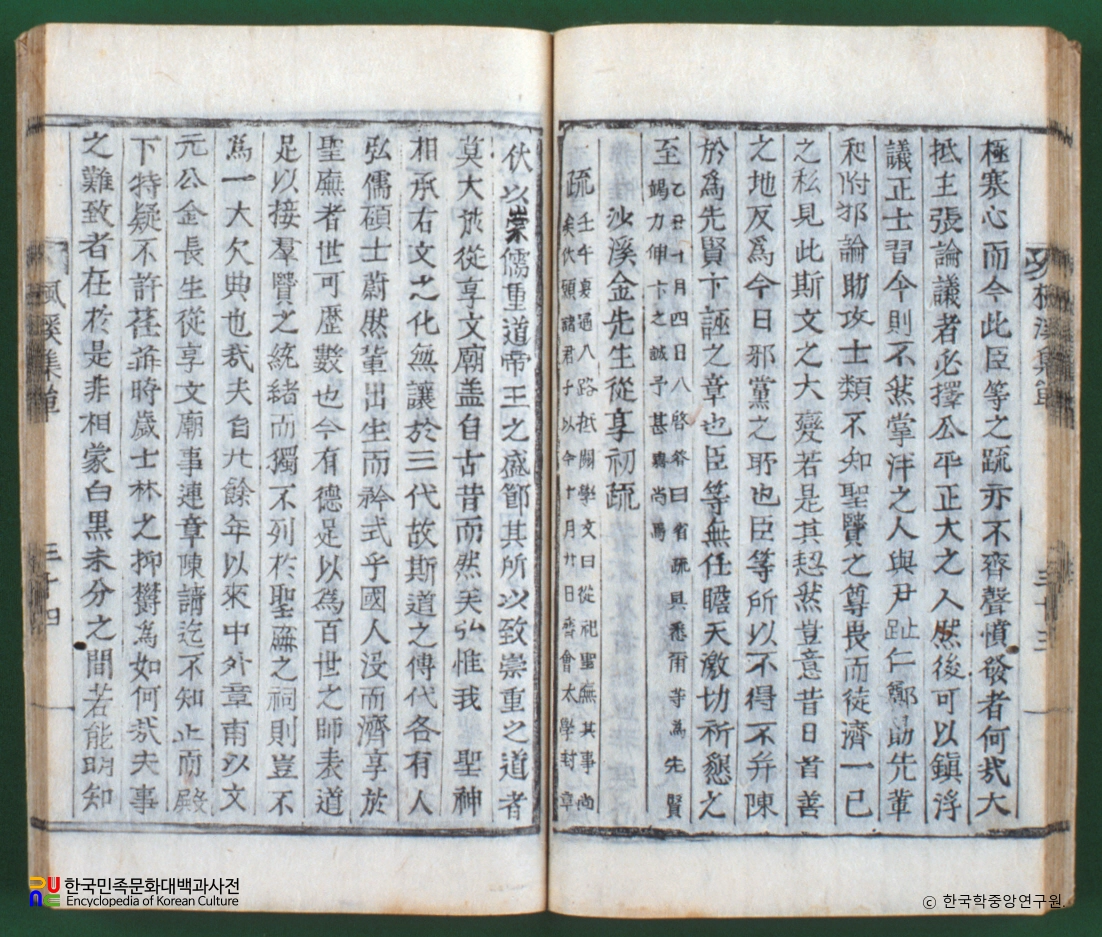 極寒心而今此臣等之䟽亦不齊聲憤發者何㢤大
抵主張論議者必擇公平正大之人然後可以鎭浮
議正士習今則不然掌泮之人與尹趾仁鄭勛先軰
和附邪論助攻士類不知聖賢之尊畏而徒濟一己
之私見此斯文之大變若是其愸然豈意昔日首善
之地反爲今日邪黨之耶也臣等所以不得不弁陳
於爲先賢卞誣之章也臣等無任瞻天激切祈懇之
至 乙丑十月四日入啓答曰省疏具悉爾等爲先賢
竭力伸卞之誠予甚嘉尚焉
沙溪金先生從享初䟽
䟽 壬午夏通八路抵關學文曰從祀聖廡其事尚
矣伏願諸君子以今十月廿日齊會太學封章
伏以崇儒重道帝王之盛節其所以致崇重之道者
莫大於從享文廟盖自古昔而然矣弘惟我 聖神
相承右文之化無讓於三代故斯道之傳代各有人
弘儒碩士蔚然軰出生而衿式乎國人没而濟享於
聖廡者世可歷數也今有德足以爲百世之師表道
足以接羣賢之統緖而獨不列於聖廡之祠則豈不
爲一大欠典也㢤夫自九餘年以來中外章甫以文
元公金長生從享文廟事連章陳請迄不知止而殿
下特疑不許荏苒時歲士林之抑欝爲如何㢤夫事
之難致者在於是非相蒙白黒未分之間若能明知
楓溪集
三十四
한국민족문화대백과사전
Encyclopedia of Korean Culture
ⓒ 한국학중앙연구원